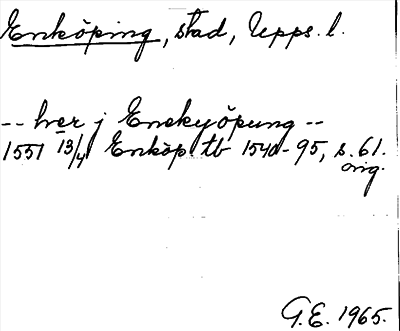 Enköping, stad, Upps. l.
-- her j Enekyöpung --
1551 13/4 Enköp tb 1540-95, s. 61.
orig.
G.E. 1965.